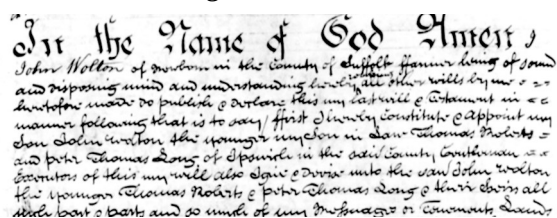 In the Name of God Amen I
John Wolton of Newborn in the County of Suffolk ffarmer being of sound
and disposing mind and understanding hereby revoking all other wills by me
heretofore made do publish & Declare this my last will & Testament in
manner following that is to say ffirst I hereby Constitute & Appoint my
Son John Wolton the younger my Son in Law Thomas Roberts
and Peter Thomas Long of Ipswich in the said County Gentleman
Executors of this my will also I give & Devise unto the said John Wolton
the younger Thomas Roberts & Peter Thomas Long & their heirs all
such part & parts and so much of my Messuages or Tenements Land